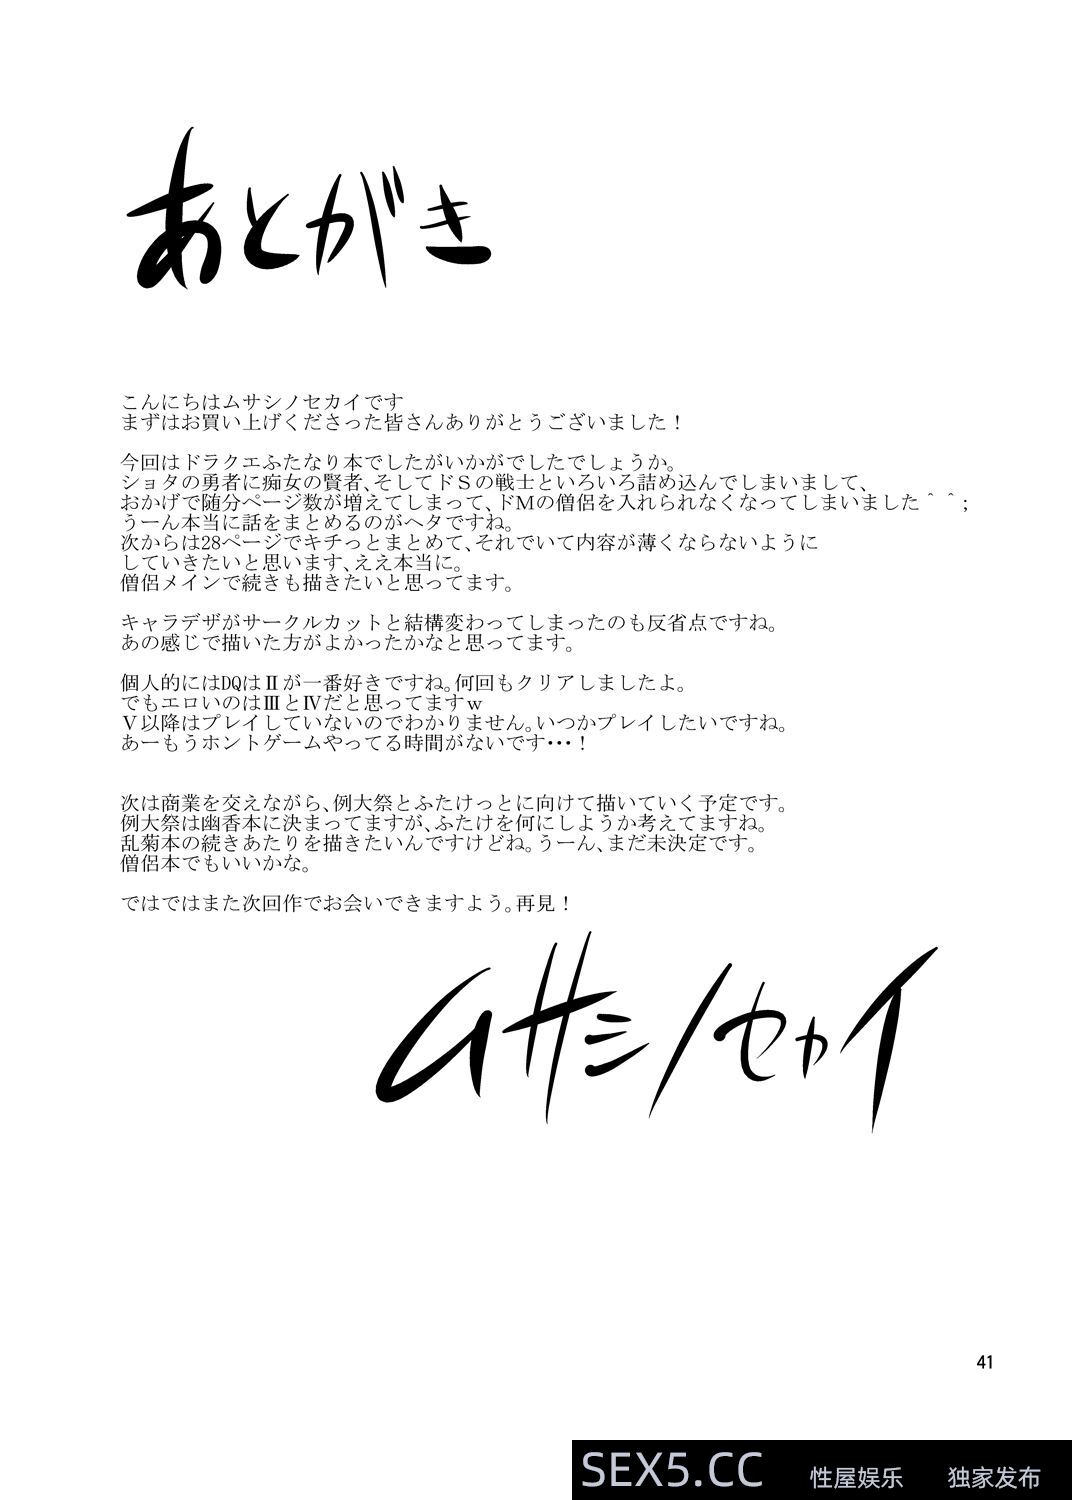 あとがき
こんにちはムサシノセカイです
まずはお買い上げくださった皆さんありがとうございました！
今回はドラクエふたなり本でしたがいかがでしたでしょうか。
ショタの勇者に痴女の賢者、そしてドＳの戦士といろいろ詰め込んでしまいまして、
おかげで随分ページ数が増えてしまって、ドＭの僧侶を入れられなくなってしまいました＾＾；
うーん本当に話をまとめるのがヘタですね。
次からは28ページでキチっとまとめて、それでいて内容が薄くならないように
していきたいと思います、ええ本当に。
僧侶メインで続きも描きたいと思ってます。
キャラデザがサークルカットと結構変わってしまったのも反省点ですね。
あの感じで描いた方がよかったかなと思ってます。
個人的にはDQはⅡが一番好きですね。何回もクリアしましたよ。
でもエロいのはⅢとⅣだと思ってますｗ
Ｖ以降はプレイしていないのでわかりません。いつかプレイしたいですね。
あーもうホントゲームやってる時間がないです･･･！
次は商業を交えながら、例大祭とふたけっとに向けて描いていく予定です。
例大祭は幽香本に決まってますが、ふたけを何にしようか考えてますね。
乱菊本の続きあたりを描きたいんですけどね。うーん、まだ未決定です。
僧侶本でもいいかな。
ではではまた次回作でお会いできますよう。再見！
ムサシノセカイ
41
SEX5.CC 性屋娱乐 独家发布